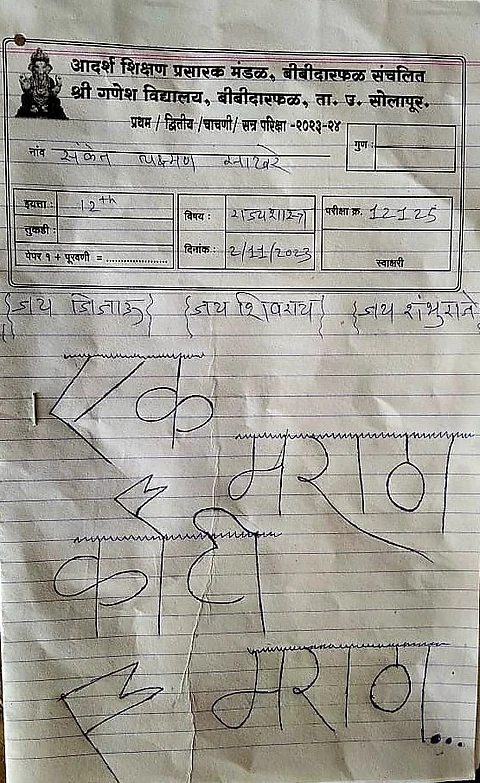 आदर्श शिक्षण प्रसारक मंडळ, बीबीदारफळ संचलित
श्री गणेश विद्यालय, बीबीदारफळ, ता. उ. सोलापूर.
प्रथम / द्वितीय /चाचणी/ सत्र परिक्षा -२०२३-२४
नांव संकेत लक्ष्मण
गुण :
इयत्ता : 12th
विषय : राज्यशास्त्र
परीक्षा क्र. 12125
तुकडी :
दिनांक : 2/11/2023
पेपर १ + पूरवणी = ......................
स्वाक्षरी
{जय जिजाऊ} {जय शिवराय} {जय शंभुराजे
एक
मराठा
कोटी
मराठा...